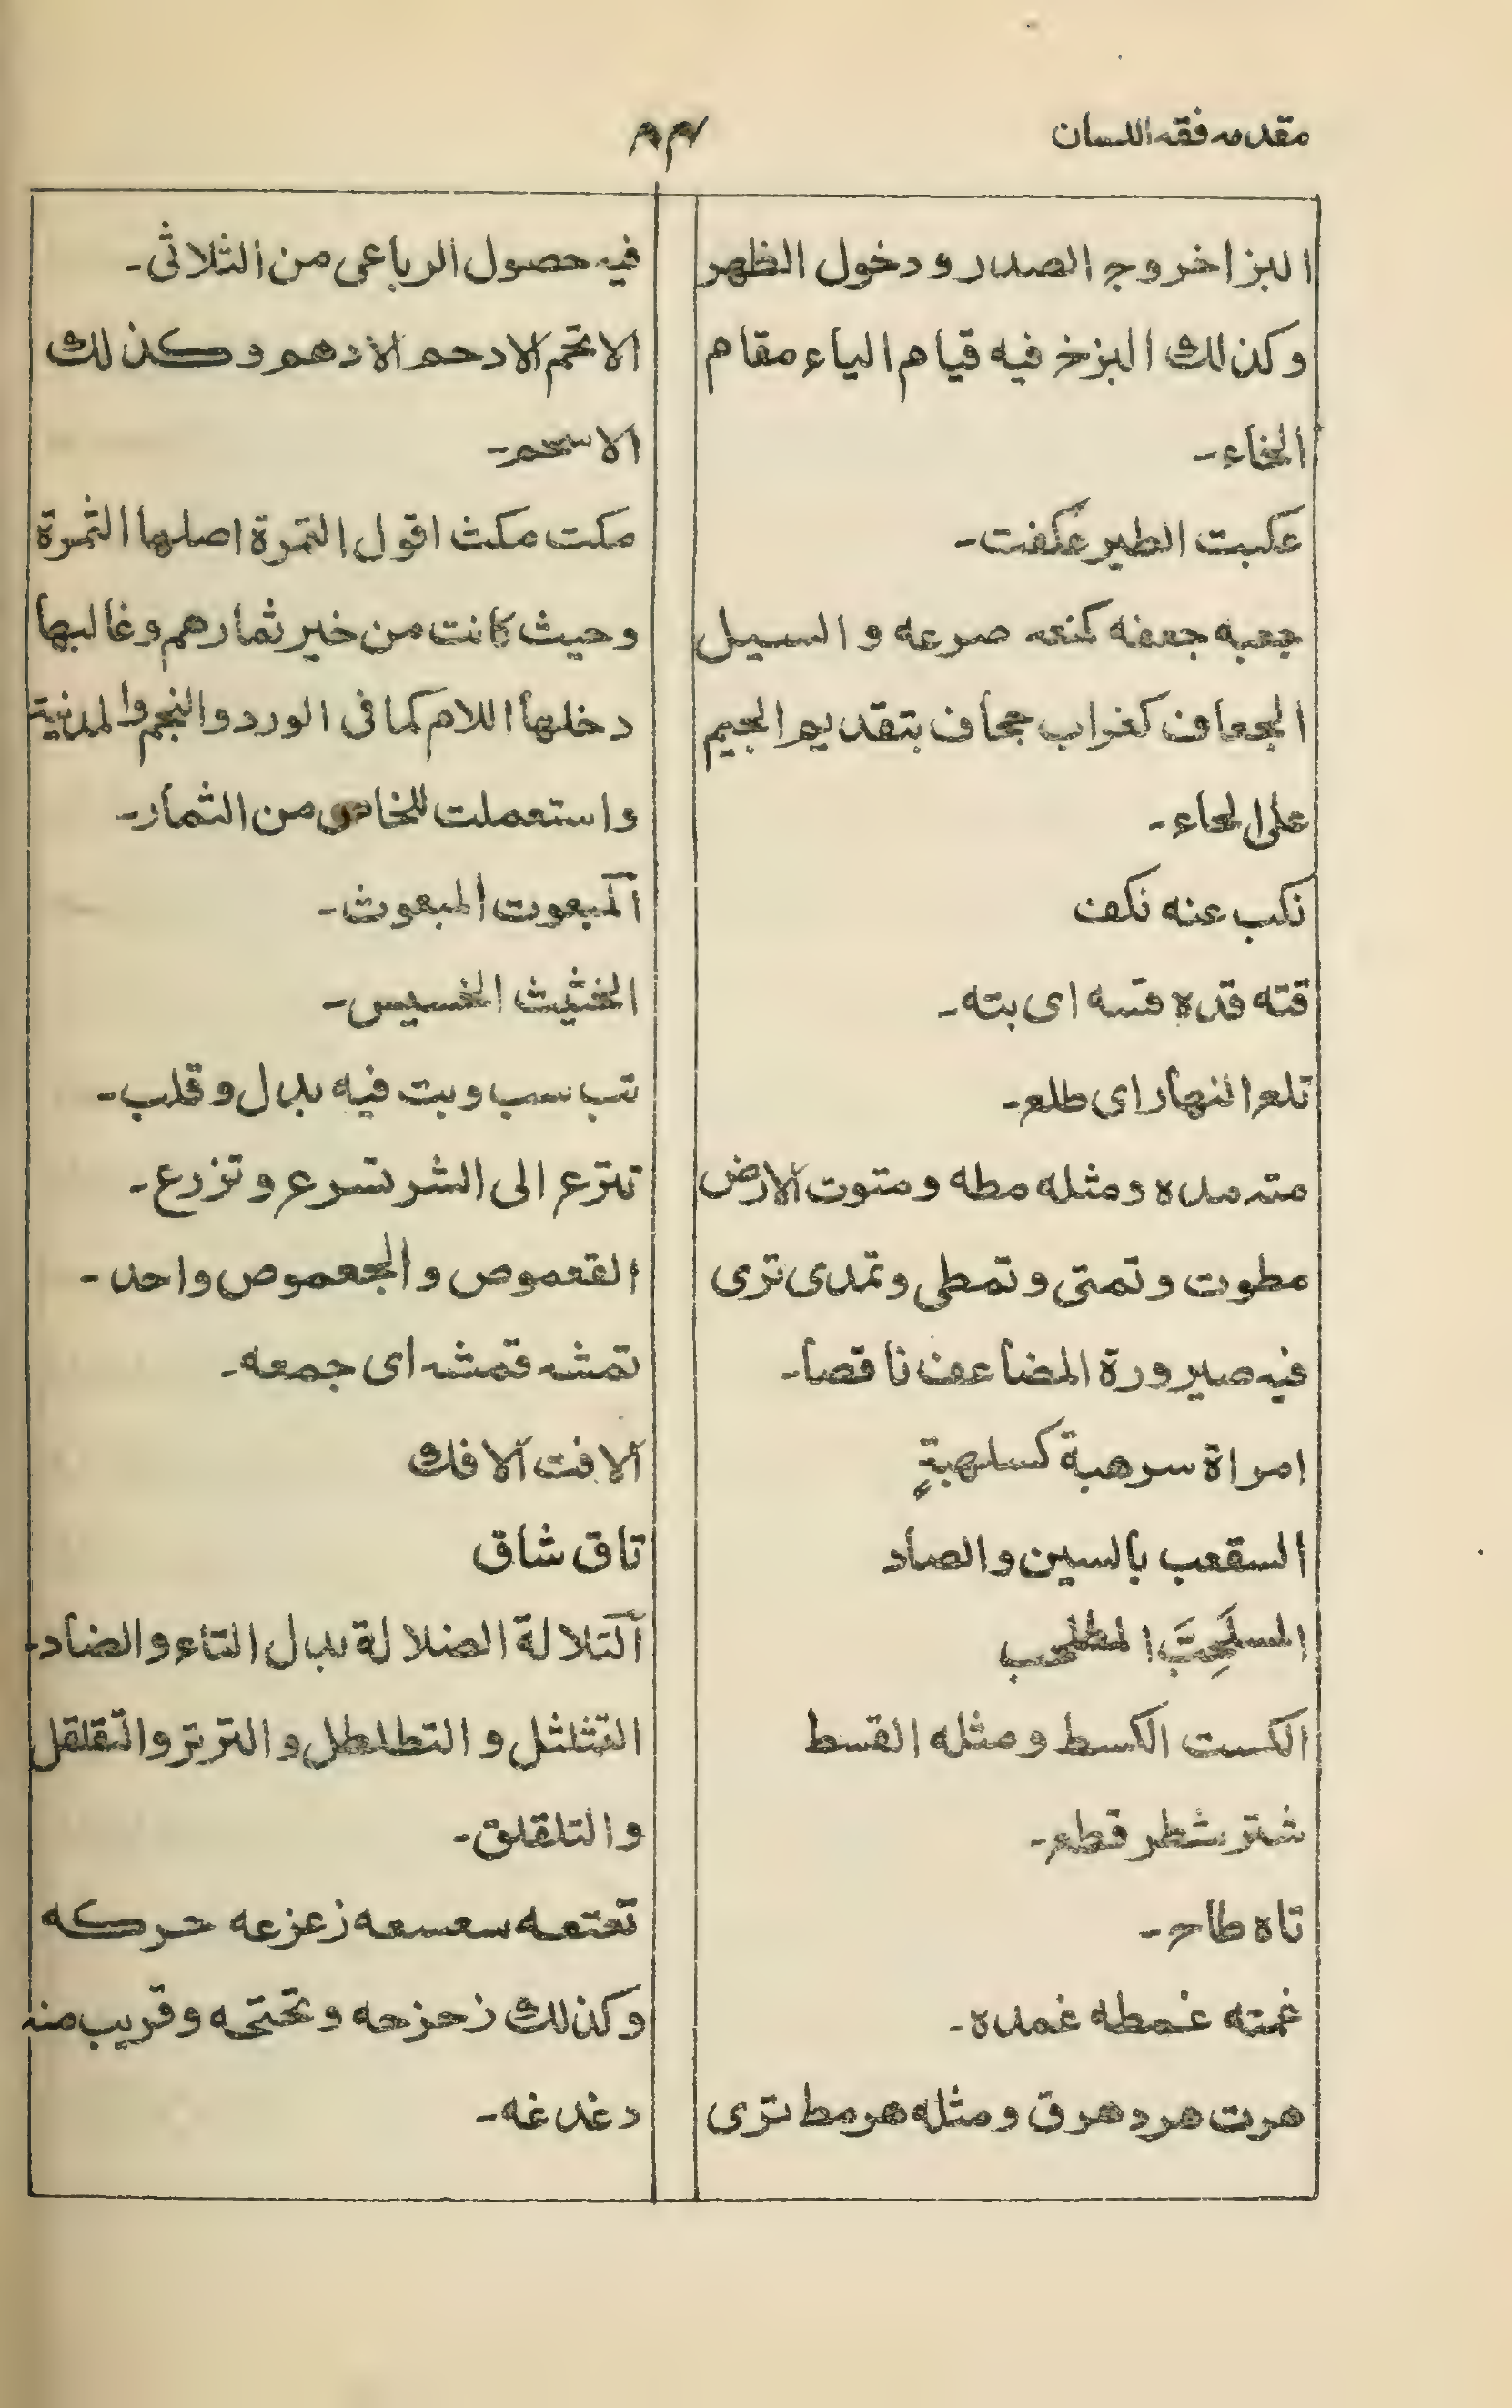 مقدمه فقه اللسان
البزا خروج الصدر و دخول الظهر
و كذلك البزخ فيه قيام الياء مقام
الخاء۔
عكبت الطير عكفت۔
جعبه جعفه كمنعه صرعه و السيل
الجعاف كغراب جحاف بتقديم الجيم
على الحاء۔
نكب عنه نكف
قته قده قسه اى بته۔
تلع النهار اى طلع۔
مته مده و مثله مطه و متوت الارض
مطوت و تمتى و تمطى و تمدى ترى
فيه صيرورة المضاعف ناقصا۔
امراة سرهبة كسلهبةٍ
السقعب بالسين و الصاد
المسلَحِبَّ المطلحب
الكست الكسط و مثله القسط
شتر شطر قطع۔
تاه طاح۔
غمته غمطه غمده۔
هرت هرد هرق و مثله هرمط ترى
فيه حصول الرباعى من الثلاثى۔
الاتحم الادحم الادهم و كذلك
الاسحم۔
مكت مكث اقول التمرة اصلها الثمرة
و حيث كانت من خير ثمارهم و غالبها
دخلها اللام كما فى الورد و النجم و المدنية
و استعملت للخاص من الثمار۔
المبعوت المبعوث۔
الخثيث الخسيس۔
تب سب و بت فيه بدل و قلب۔
تترع الى الشر تسرع و تزرع۔
القعموص و الجعموص واحد۔
تمشه قمشه اى جمعه۔
الافت الافك
تاق شاق
التلالة الضلالة بدل التاء و الضاد۔
التثلثل و التطلطل و الترتر و التقلقل
و التلقلق۔
تعتعه سعسعه زعزعه حركه
و كذلك زحزحه و تحتحه و قريب منه
دغدغه۔